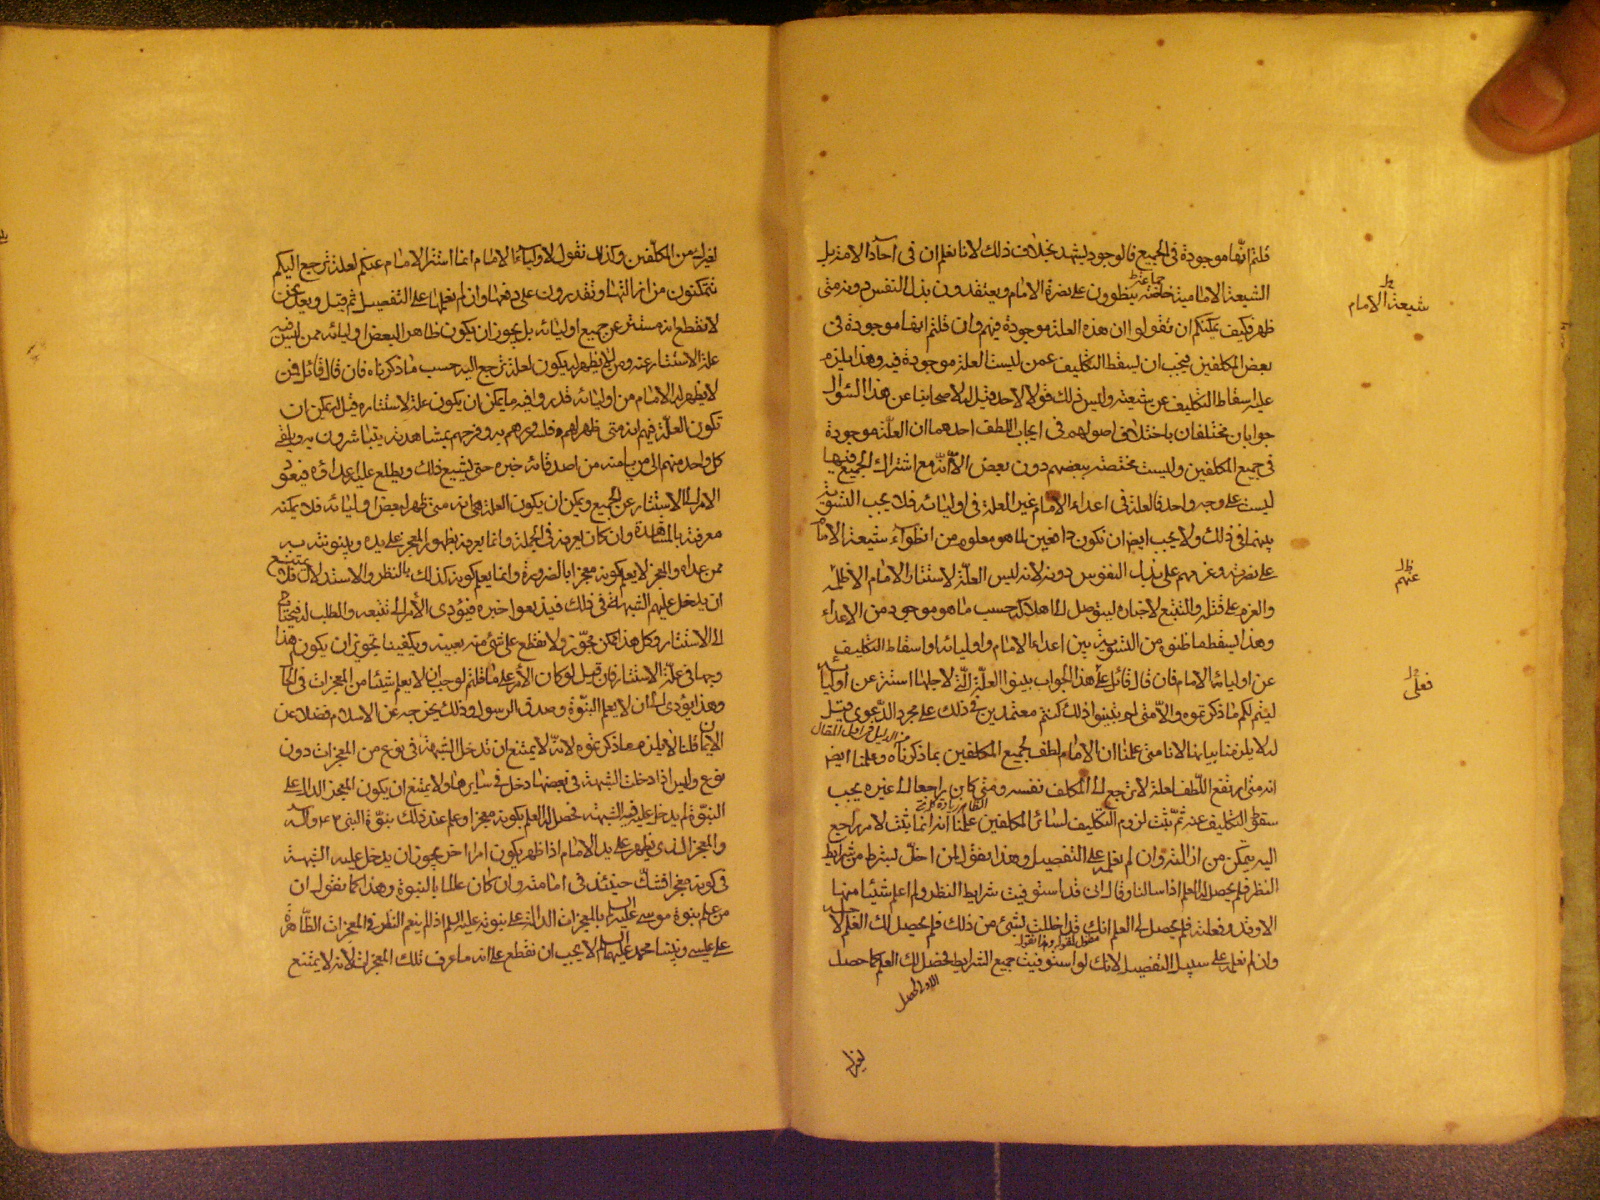 قلتم انها موجودة في الجميع فالوجود يشهد بخلاف ذلك لانا نعلم ان في آحاد الامة بل
الشيعة الامامية خاصة جماعة ينطوون على نصرة الامام ويعتقدون بذل النفس دونه متى
شيعة الامام
ظهر فكيف يمكنكم ان تقولوا ان هذه العلة موجودة فيهم وان قلتم انها موجودة في
بعض المكلفين فيجب ان يسقط التكليف عمن ليست العلة موجودة فيه وهذا يلزم
عليه اسقاط التكليف عن شيعته وليس ذلك قولا لاحد قيل له لاصحابنا عن هذا السؤال
جوابان مختلفان باختلاف اصولهم في ايجاب اللطف احدهما ان العلة موجودة
في جميع المكلفين وليست مختصة ببعضهم دون بعض الا انه مع اشتراك الجميع فيها
ليست على وجه واحد فالعلة في اعداء الامام غير العلة في اوليائه فلا يجب التسوية
بينهما في ذلك ولا يجب ايضا ان نكون دافعين لما هو معلوم من انطواء شيعة الامام
على نصرته وعزمهم على بذل النفوس دونه لانه ليس العلة لاستتار الامام الا ظلمه
عنهم
والعزم على قتله والتتبع لاخباره ليتوصل الى اهلاكه حسب ما هو موجود من الاعداء
وهذا يسقط ما ظنوه من التسوية بين اعداء الامام واوليائه او اسقاط التكليف
عن اوليائه الامام فان قال قائل على هذا الجواب بينوا العلة التي لاجلها استتر عن اوليائه
فعلى
ليتم لكم ما ذكرتموه والا متى لم تبينوا ذلك كنتم معتمدين في ذلك على مجرد الدعوى قيل
له لا يلزمنا بيانها لانا متى علمنا ان الامام لطف لجميع المكلفين بما ذكرناه وعلمنا ايضا
انه متى ارتفع اللطف لعلة لا ترجع الى المكلف نفسه ومتى كان راجعا الى غيره يجب
سقوط التكليف عنه ثم ثبت لزوم التكليف لسائر المكلفين علمنا انه انما ثبت لامر راجع
اليه يتمكن من ازالته وان لم نعلمه على التفصيل وهذا نقول لمن اخل بشرط من شرايط
النظر فلم يحصل له العلم اذا سالنا وقال اني قد استوفيت شرايط النظر ولم اعلم شيئا منها
الا وقد فعلته فلم يحصل لي العلم انك قد اخللت بشيء من ذلك فلم يحصل لك العلم لاجله
وان لم نعلمه على سبيل التفصيل لانك لو استوفيت جميع الشرايط لحصل لك العلم كما حصل
لغيرك
لغيرك من المكلفين وكذلك نقول لاولياء الامام انما استتر الامام عنكم لعلة ترجع اليكم
تتمكنون من ازالتها وتقدرون على دفعها وان لم نعلمها على التفصيل ثم قيل وبعد فنحن
لا نقطع انه مستتر عن جميع اوليائه بل يجوز ان يكون ظاهرا لبعض اوليائه ممن ليس فيه
علة الاستتار عنه ومن لا يظهر له يكون لعلة ترجع اليه حسب ما ذكرناه فان قال قائل فمن
لا يظهر له الامام من اوليائه قدروا فيه ما يمكن ان يكون علة لاستتاره قيل له يمكن ان
تكون العلة فيهم انه متى ظهر لهم وفلسرورهم به وفرحهم بمشاهدته يتباشرون به ويلقي
كل واحد منهم الى من يامنه من اصدقائه خبره حتى يشيع ذلك ويطلع عليه اعداؤه فيعود
الامر الى الاستتار عن الجميع ويمكن ان يكون العلة انه متى ظهر لبعض اوليائه فلا يمكنه
معرفته بالمشاهدة وان كان يعرفه في الجملة وانما يعرفه بظهور المعجز على يده
ممن عداه والمعجز لا يعلم كونه معجزا بالضرورة وانما يعلم كونه كذلك بالنظر والاستدلال فلا يمتنع
ان يدخل عليهم الشبهة في ذلك فيذيعوا خبره فيؤدي الامر الى تتبعه والطلب له فيحتاج
الى الاستتار وكل هذا ممكن مجوز ولا نقطع على شيء منه بعينه ويكفينا تجويز ان يكون هذا
وجها في علة الاستتار فان قيل لو كان الامر على ما قلتم لوجب ان لا يعلم شيئا من المعجزات في الحال
وهذا يؤدي الى ان لا يعلم النبوة وصدق الرسول وذلك يخرجه عن الاسلام فضلا عن
الايمان قلنا لا يلزم ما ذكرتموه لانه لا يمتنع ان تدخل الشبهة في نوع من المعجزات دون
نوع وليس اذا دخلت الشبهة في بعضها دخل في سايرها ولا يمتنع ان يكون المعجز الدال على
النبوة لم يدخل عليه فيه الشبهة فحصل له العلم بكونه معجزا وعلم عند ذلك بنوة النبي وآله
والمعجز الذي يظهر على يد الامام اذا ظهر يكون امرا اخر يجوز ان يدخل عليه الشبهة
في كونه معجزا فيشك حينئذ في امامته وان كان عالما بالنبوة وهذا كما نقول ان
من علم بنبوة موسى عليه السلام بالمعجزات الدالة على نبوته عليه السلم اذا لم ينعم النظر في المعجزات الظاهرة
على عيسى ونبينا محمد عليهما السلم لا يجب ان نقطع على انه ما عرف تلك المعجزات لانه لا يمتنع